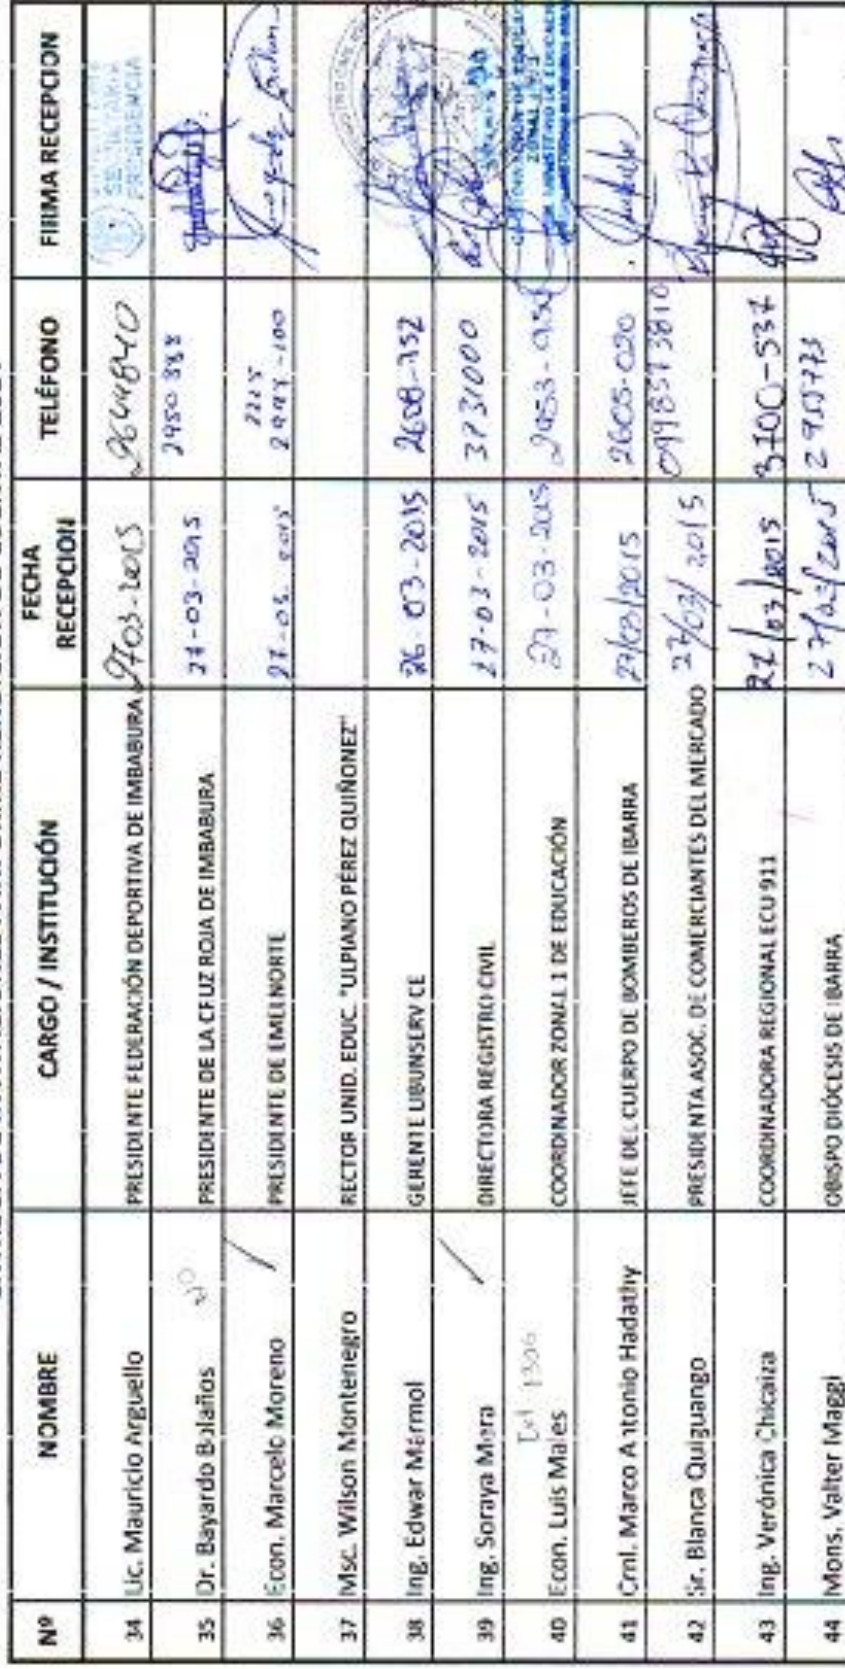 Nº NOMBRE CARGO / INSTITUCIÓN FECHA RECEPCION TELÉFONO FIRMA RECEPCION
34 Lic. Mauricio Arguello PRESIDENTE FEDERACIÓN DEPORTIVA DE IMBABURA 2703-2015 2644840 SECRETARIA PRESIDENCIA
35 Dr. Bayardo Bolaños NO PRESIDENTE DE LA CRUZ ROJA DE IMBABURA 27-03-2015 2950888
36 Econ. Marcelo Moreno PRESIDENTE DE EMELNORTE 27-03-2015 2225
37 Msc. Wilson Montenegro RECTOR UNID. EDUC. "ULPIANO PÉREZ QUIÑONEZ"
38 Ing. Edwar Mármol GERENTE LIBUNSERV CE 26-03-2015 2608-752
39 Ing. Soraya Mora DIRECTORA REGISTRO CIVIL 27-03-2015 3731000
40 Econ. Luis Males 1306 COORDINADOR ZONAL 1 DE EDUCACIÓN 27-03-2015 MINISTERIO DE EDUCACIÓN
41 Crnl. Marco Antonio Hadathy JEFE DEL CUERPO DE BOMBEROS DE IBARRA 27/03/2015 2605-020
42 Sr. Blanca Quiguango PRESIDENTA ASOC. DE COMERCIANTES DEL MERCADO 27/03/2015
43 Ing. Verónica Chicaiza COORDINADORA REGIONAL ECU 911 27/03/2015 3700-537
44 Mons. Valter Maggi OBISPO DIÓCESIS DE IBARRA 27/03/2015